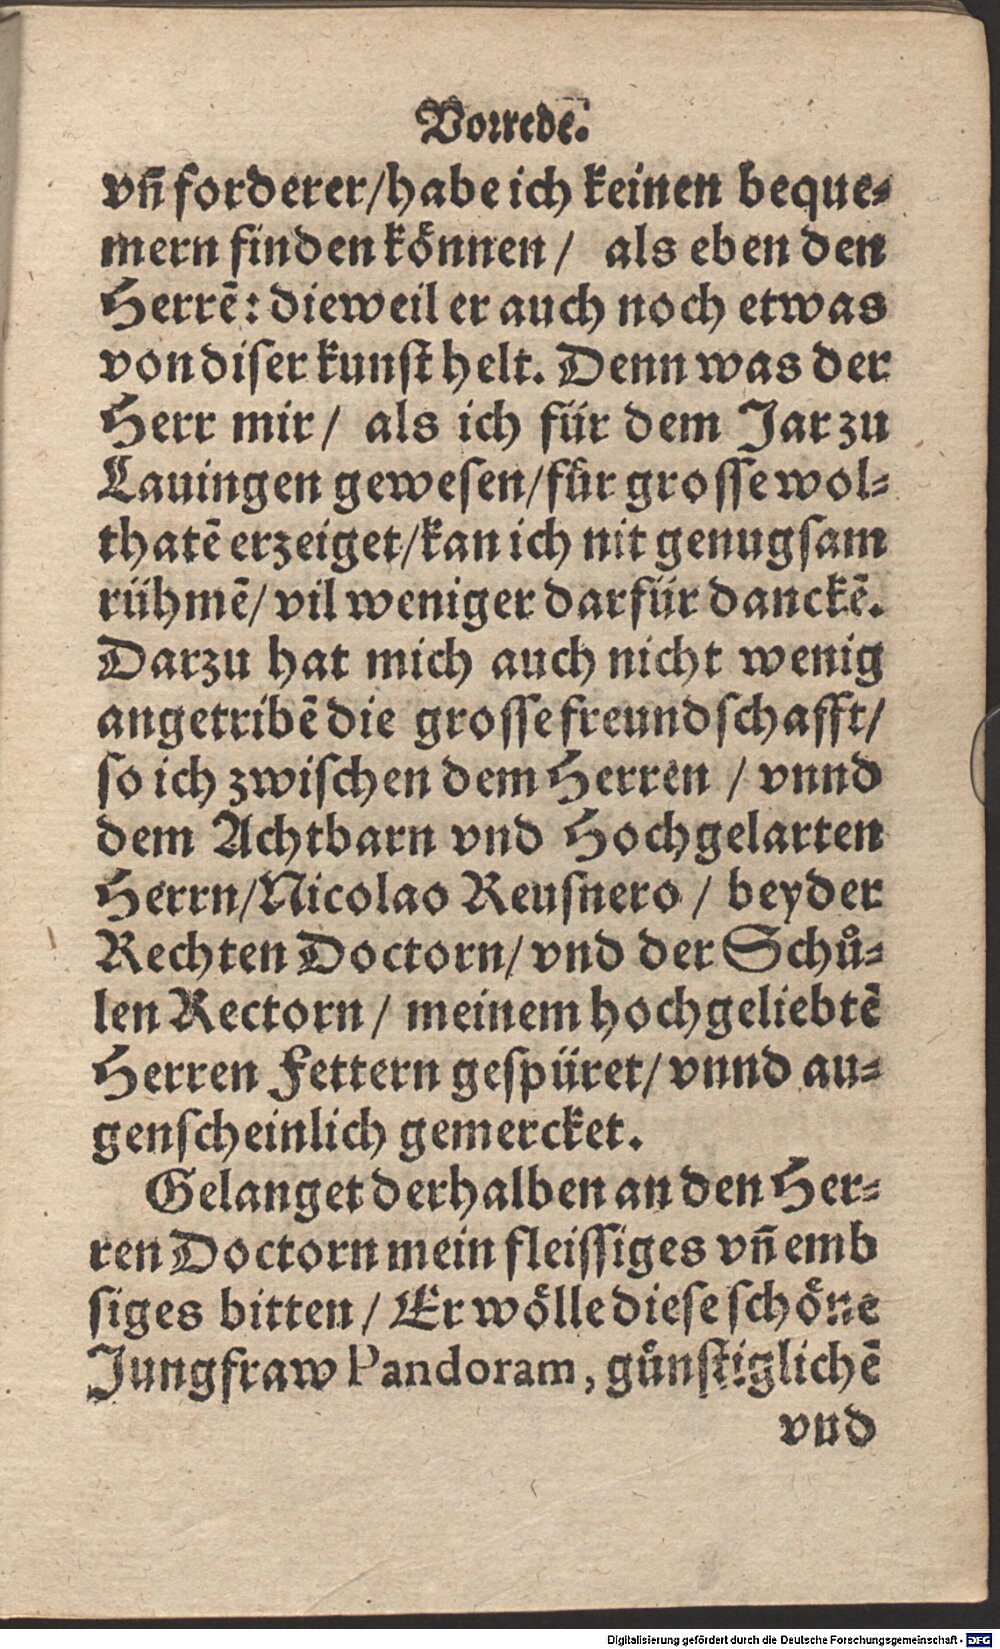 Vorrede.
vñ forderer/habe ich keinen beque⸗
mern finden koͤnnen/ als eben den
Herrẽ: dieweil er auch noch etwas
von diser kunst helt. Denn was der
Herr mir/ als ich für dem Jar zu
Lauingen gewesen/fuͤr grosse wol⸗
thatẽ erzeiget/kan ich nit genugsam
rühmẽ/ vil weniger darfür danckẽ.
Darzu hat mich auch nicht wenig
angetribẽ die grosse freundschafft/
so ich zwischen dem Herren / vnnd
dem Achtbarn vnd Hochgelarten
Herrn/Nicolao Reusnero / beyder
Rechten Doctorn/ vnd der Schuͦ⸗
len Rectorn / meinem hochgeliebtẽ
Herren Fettern gespüret/ vnnd au⸗
genscheinlich gemercket.
Gelanget derhalben an den Her⸗
ren Doctorn mein fleissiges vñ emb
siges bitten / Er woͤlle diese schoͤne
Jungfraw Pandoram, guͤnstiglichẽ
vnd
Digitalisierung gefördert durch die Deutsche Forschungsgemeinschaft - DFG